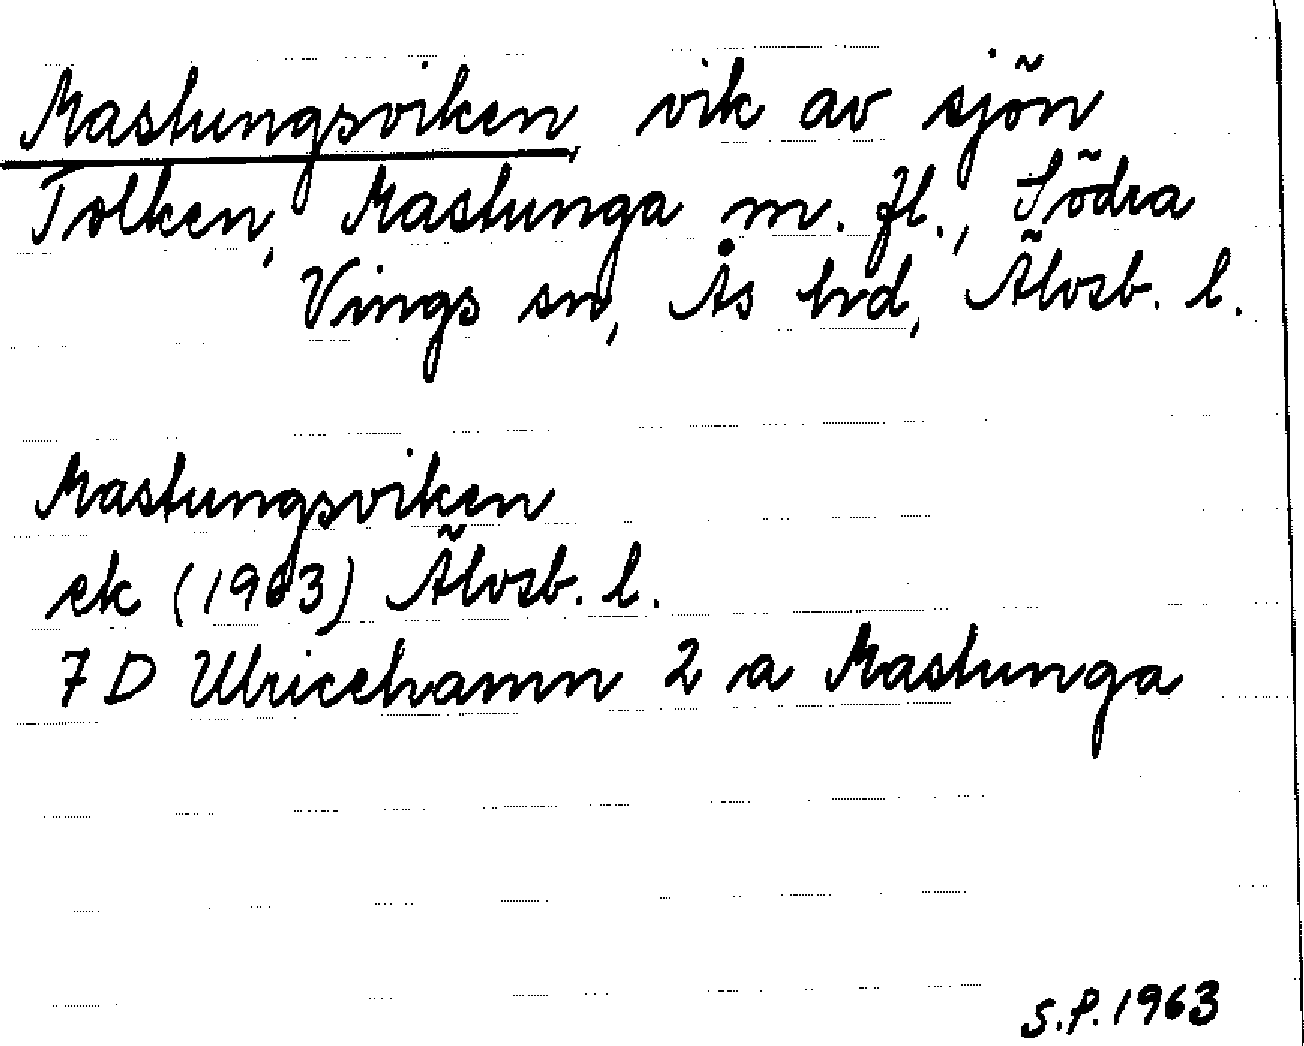 Mastungsviken vik av sjön
Tolken, Mastunga m. fl., Södra
Vings sn, Ås hrd, Älvsb. l.
Mastungsviken
ek (1963) Älvsb. l.
7 D Ulricehamn 2 a Mastunga
S.P. 1963